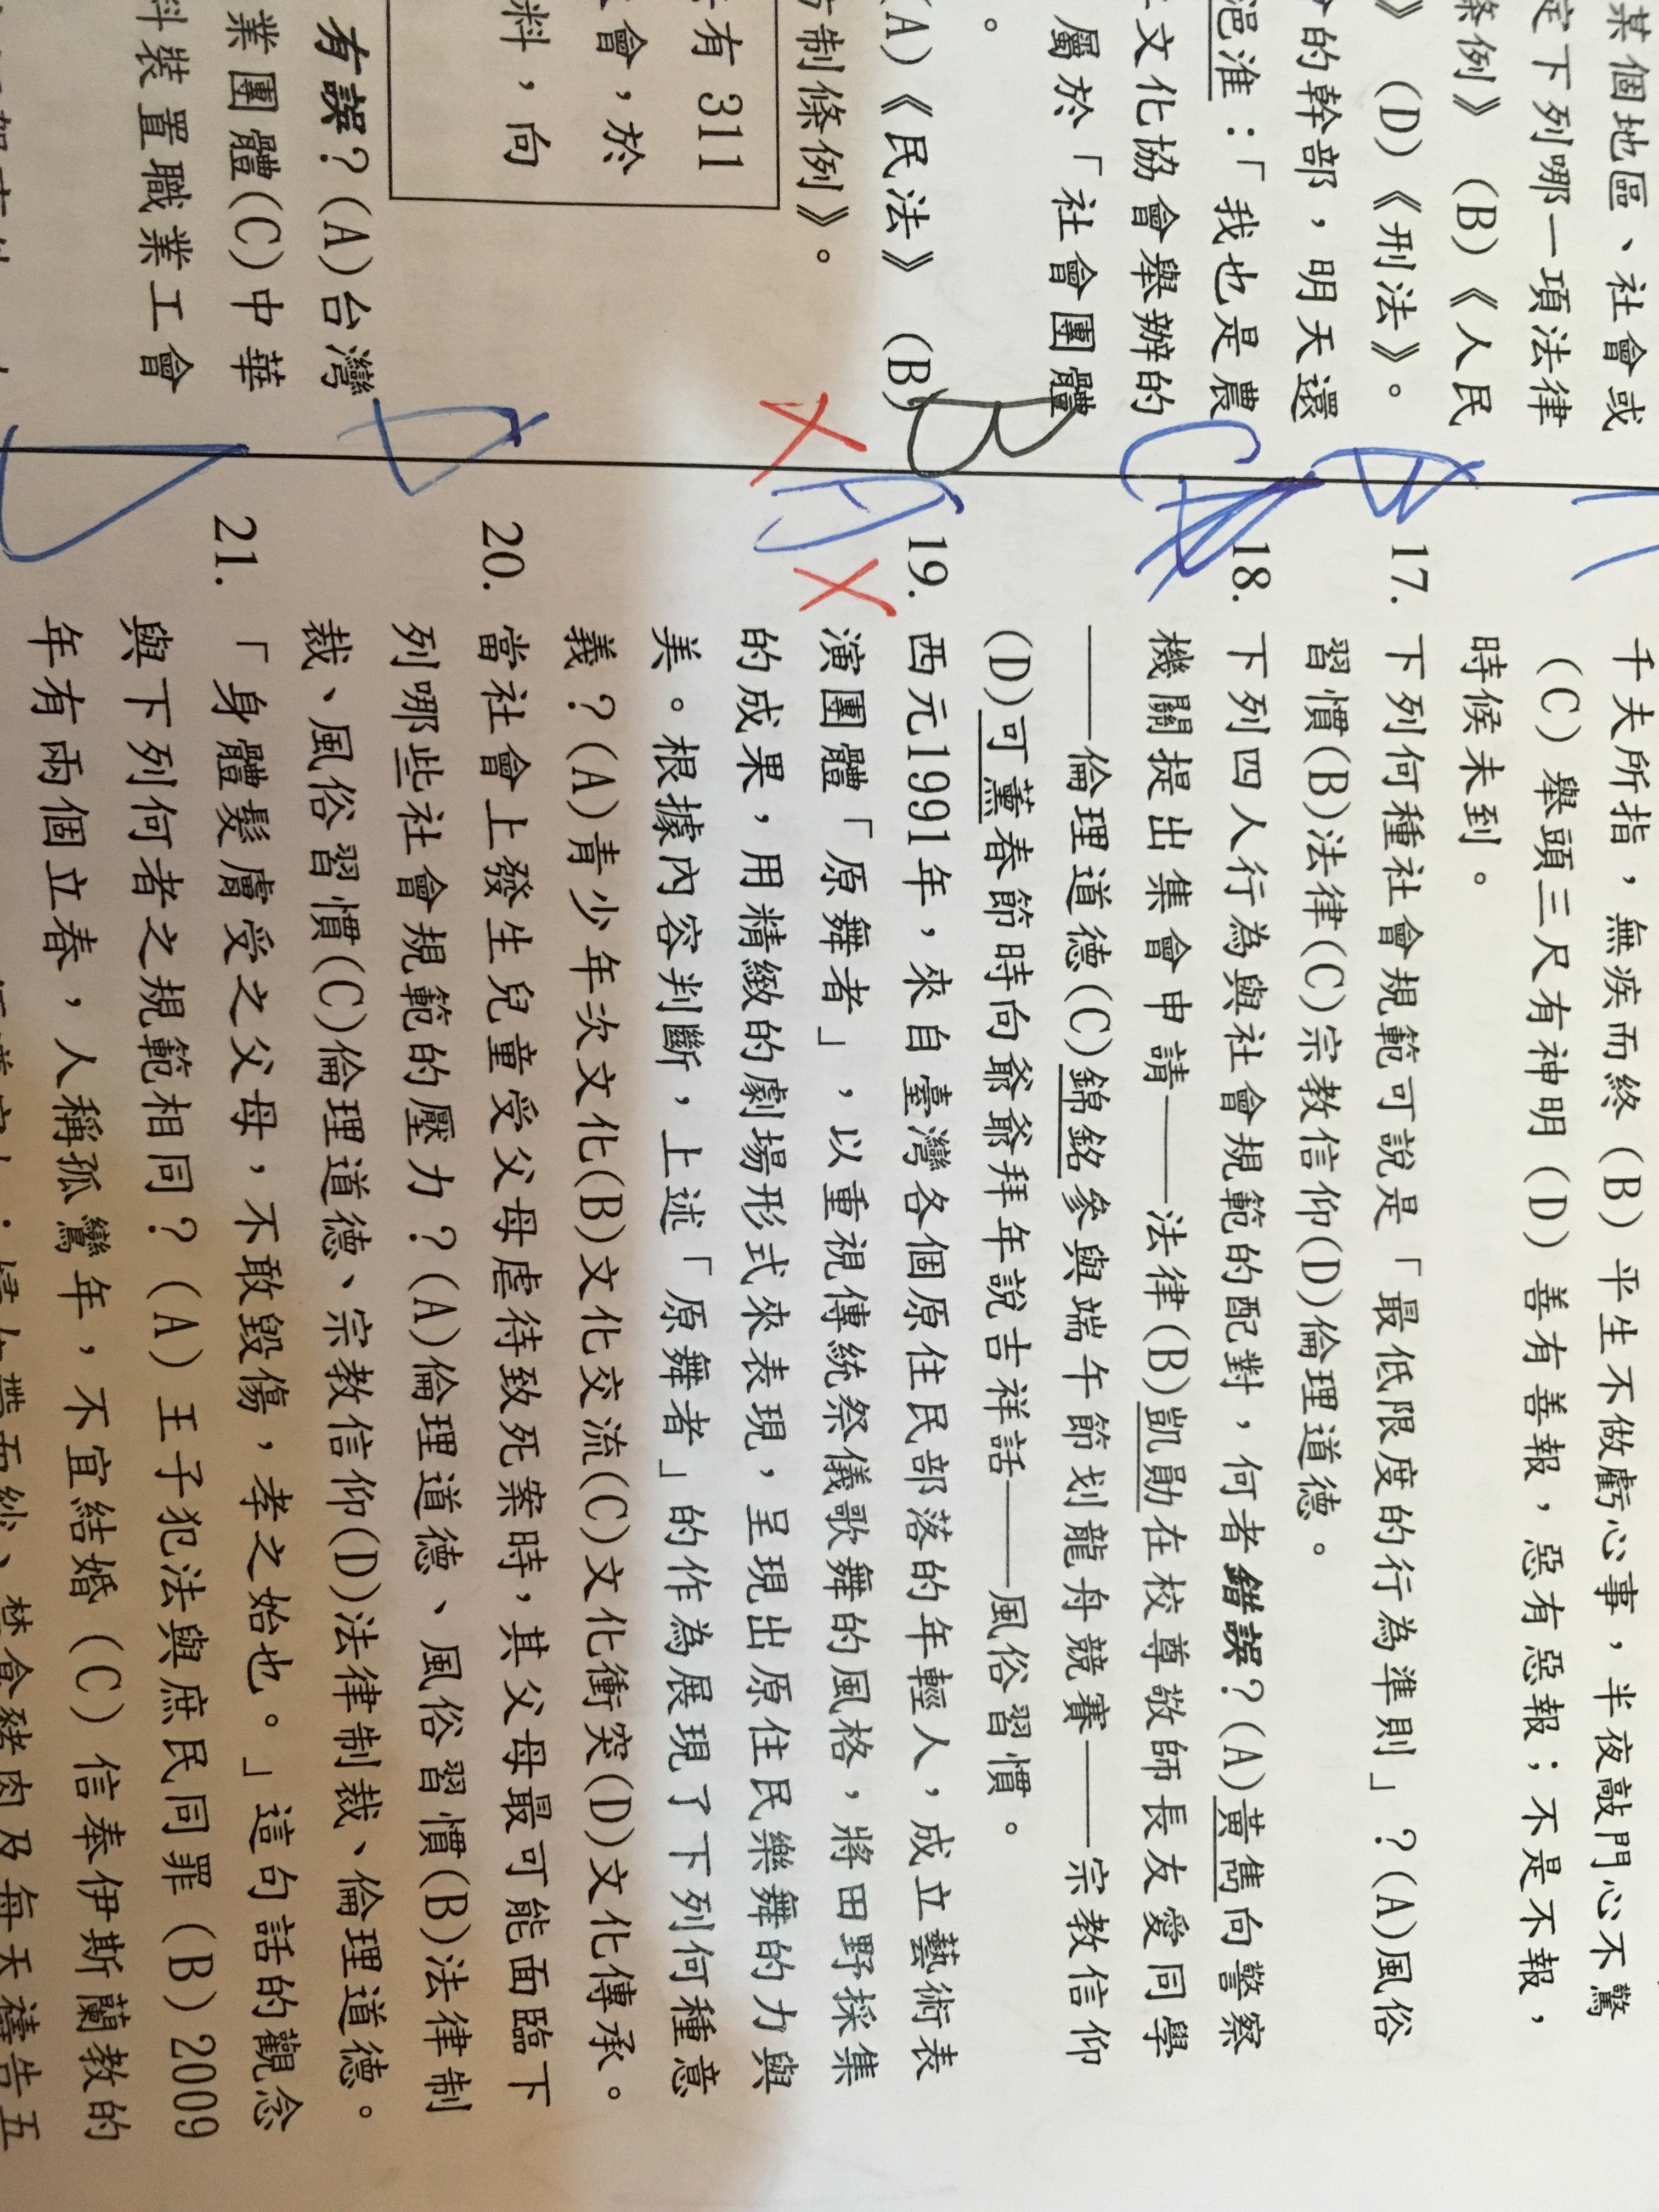 某個地區、社會或
定下列哪一項法律
條例》 (B)《人民
》 (D)《刑法》。
的幹部，明天還
浥淮：「我也是農
文化協會舉辦的
屬於「社會團體
。
(A)《民法》 (B)
制條例》。
有 311
會，於
料，向
有誤？(A)台灣
業團體(C)中華
料裝置職業工會
千夫所指，無疾而終 (B) 平生不做虧心事，半夜敲門心不驚
(C) 舉頭三尺有神明 (D) 善有善報，惡有惡報；不是不報，
時候未到。
B
17. 下列何種社會規範可說是「最低限度的行為準則」？(A)風俗
習慣(B)法律(C)宗教信仰(D)倫理道德。
C
18. 下列四人行為與社會規範的配對，何者錯誤？(A)黃雋向警察
機關提出集會申請——法律(B)凱勛在校尊敬師長友愛同學
——倫理道德(C)錦銘參與端午節划龍舟競賽——宗教信仰
(D)可薰春節時向爺爺拜年說吉祥話——風俗習慣。
B
19. 西元1991年，來自臺灣各個原住民部落的年輕人，成立藝術表
演團體「原舞者」，以重視傳統祭儀歌舞的風格，將田野採集
的成果，用精緻的劇場形式來表現，呈現出原住民樂舞的力與
美。根據內容判斷，上述「原舞者」的作為展現了下列何種意
義？(A)青少年次文化(B)文化交流(C)文化衝突(D)文化傳承。
20. 當社會上發生兒童受父母虐待致死案時，其父母最可能面臨下
列哪些社會規範的壓力？(A)倫理道德、風俗習慣(B)法律制
裁、風俗習慣(C)倫理道德、宗教信仰(D)法律制裁、倫理道德。
21. 「身體髮膚受之父母，不敢毀傷，孝之始也。」這句話的觀念
與下列何者之規範相同？(A) 王子犯法與庶民同罪 (B) 2009
年有兩個立春，人稱孤鸞年，不宜結婚 (C) 信奉伊斯蘭教的
禁食豬肉及每天禱告五